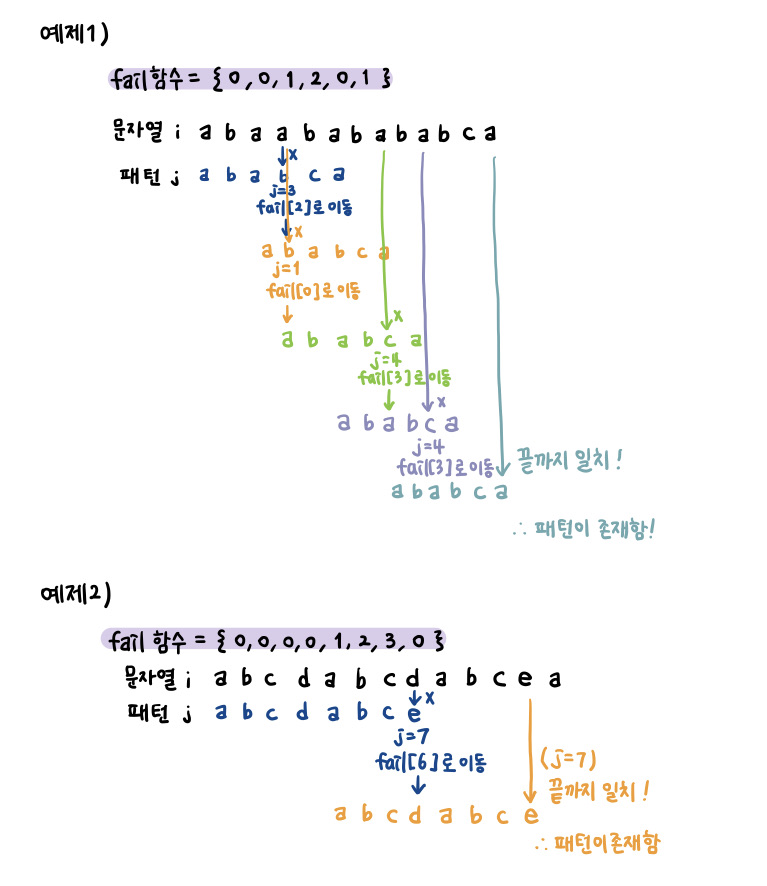 예제1)
fail함수 = { 0, 0, 1, 2, 0, 1 }
문자열 i a b a a b a b a b a b c a
x
패턴 j a b a b c a
j=3
fail[2]로 이동
x
a b a b c a
j=1
fail[0]로 이동
x
a b a b c a
j=4
fail[3]로 이동
x
a b a b c a
j=4
fail[3]로 이동
끝까지 일치!
a b a b c a
∴ 패턴이 존재함!
예제2)
fail 함수 = { 0, 0, 0, 0, 1, 2, 3, 0 }
문자열 i a b c d a b c d a b c e a
x
패턴 j a b c d a b c e
j=7
fail[6]로 이동
(j=7)
끝까지 일치!
a b c d a b c e
∴ 패턴이존재함